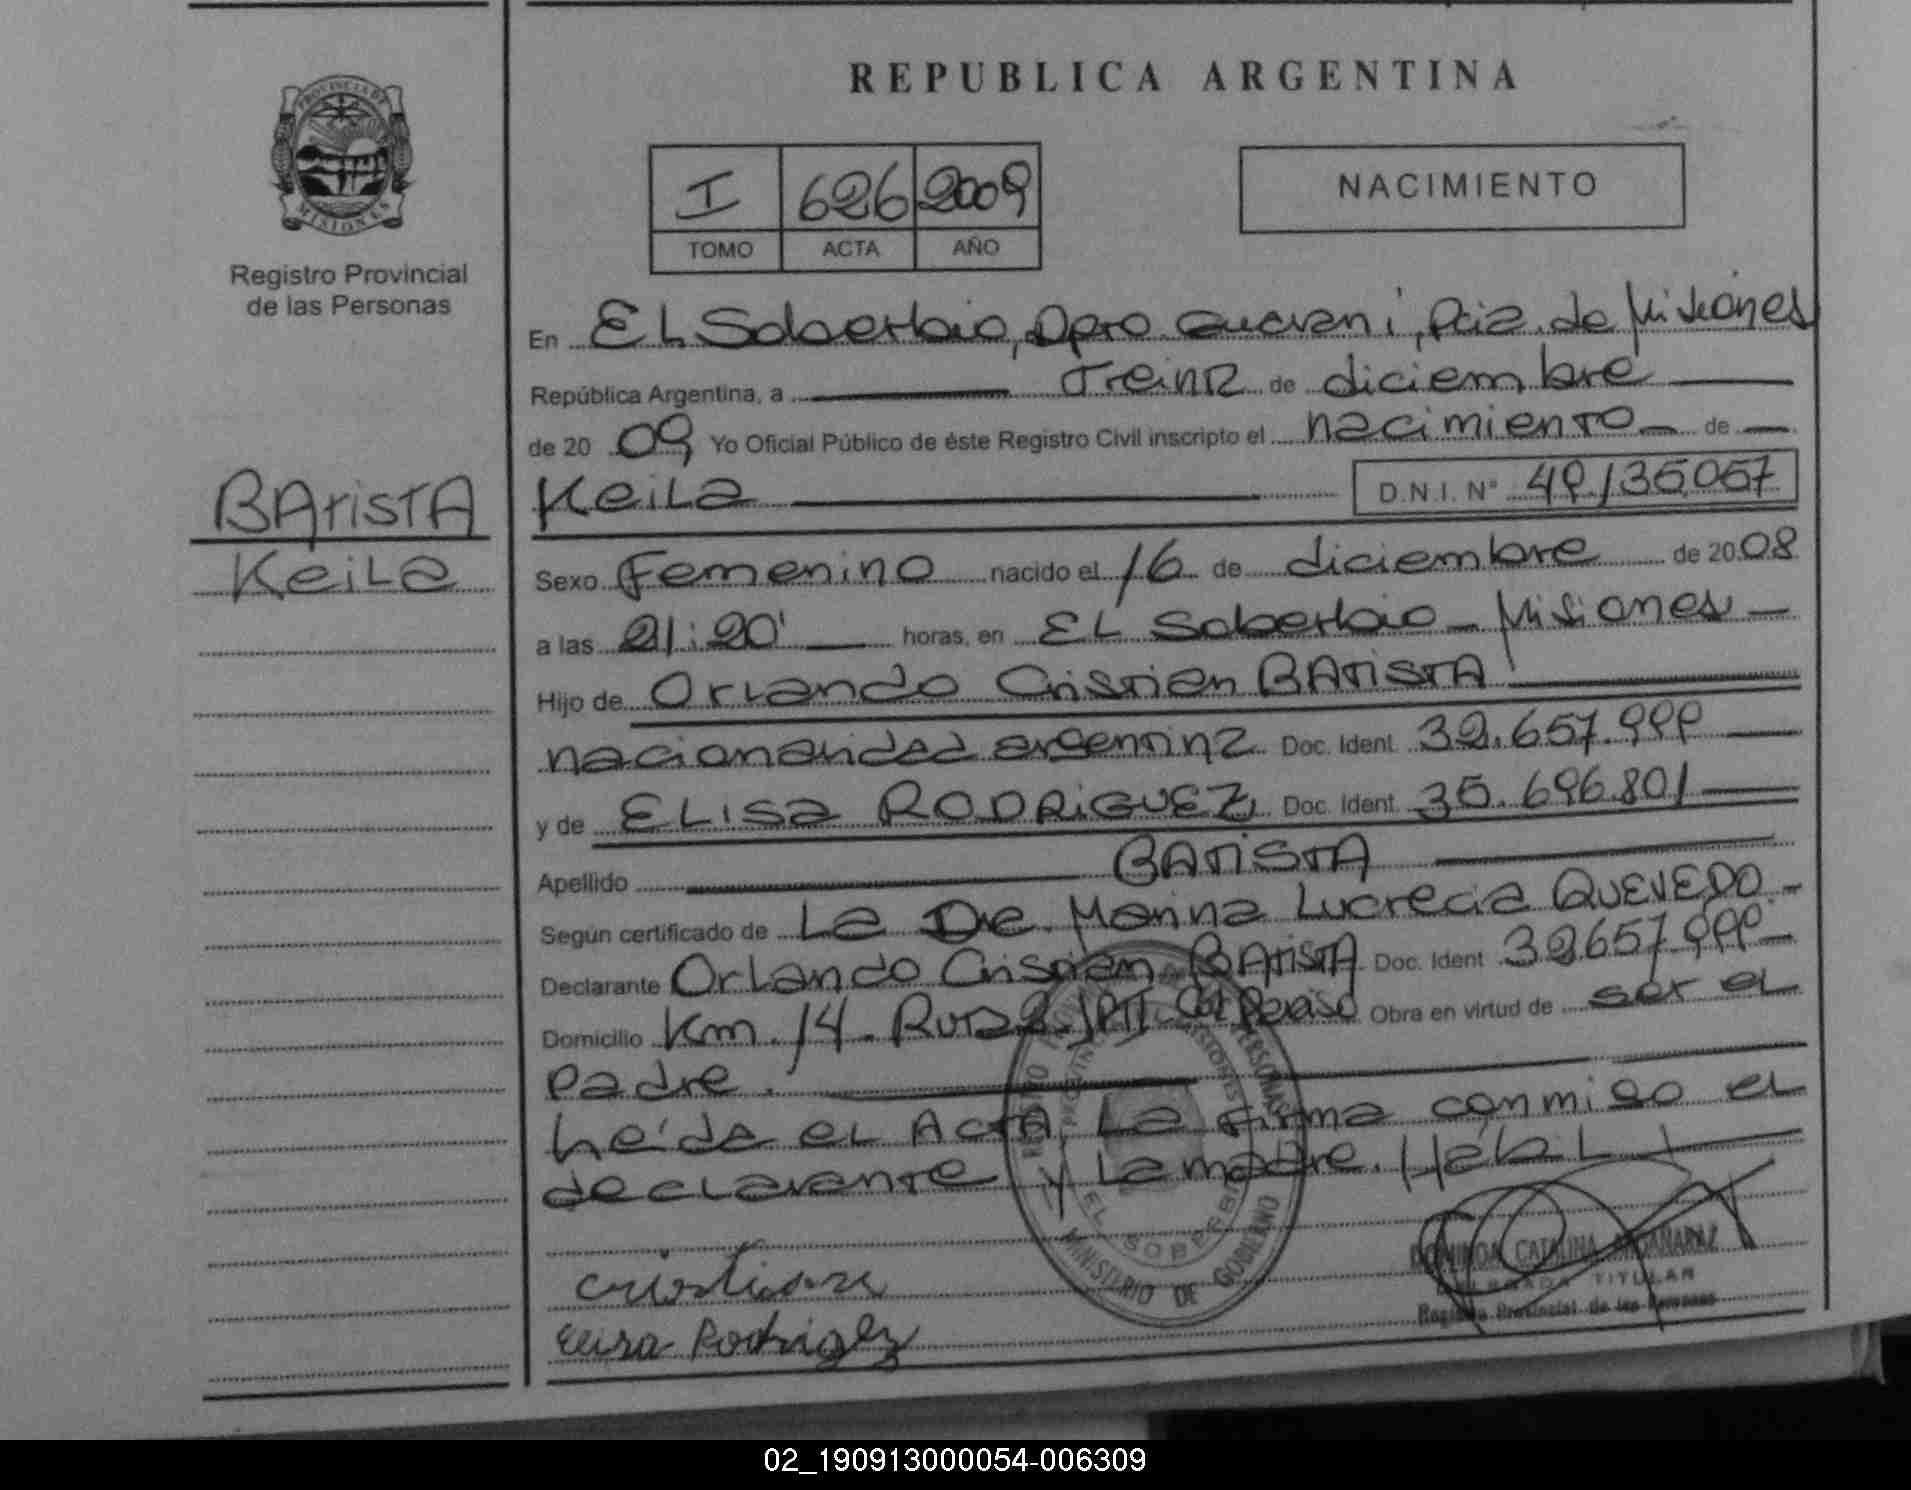 REPUBLICA ARGENTINA
PROVINCIA DE
MISIONES
Registro Provincial
de las Personas
I 626 2009
TOMO ACTA AÑO
NACIMIENTO
En EL Soberbio, Dpto. Guaraní, Pcia. de Misiones
República Argentina, a Treinta de diciembre
de 2009 Yo Oficial Público de éste Registro Civil inscripto el nacimiento de
BAtistA
Keila
Keila D.N.I. Nº 49.135.057
Sexo Femenino nacido el 16 de diciembre de 2008
a las 21:20' horas, en EL Soberbio - Misiones
Hijo de Orlando Cristian BATISTA
nacionalidad argentina Doc. Ident. 32.657.999
y de ELISA RODRIGUEZ Doc. Ident. 35.696.801
Apellido BATISTA
Según certificado de La Dre. Marina Lucrecia QUEVEDO
Declarante Orlando Cristian BATISTA Doc. Ident 32657.999
Domicilio Km. 14. Ruta 2. Obra en virtud de ser el
Padre.
Leída el Acta, La Firma conmigo el
declarante y La madre. Hábil
MINISTERIO DE GOBIERNO
EL SOBERBIO
Cristian
Elisa Rodrigez
DOMINGA CATALINA
DELEGADA TITULAR
Registro Provincial de las Personas
02_190913000054-006309